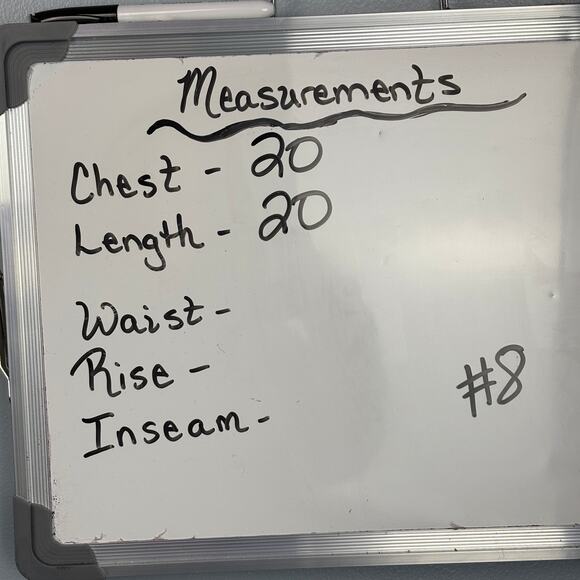 Measurements
Chest - 20
Length - 20
Waist -
Rise -
#8
Inseam -